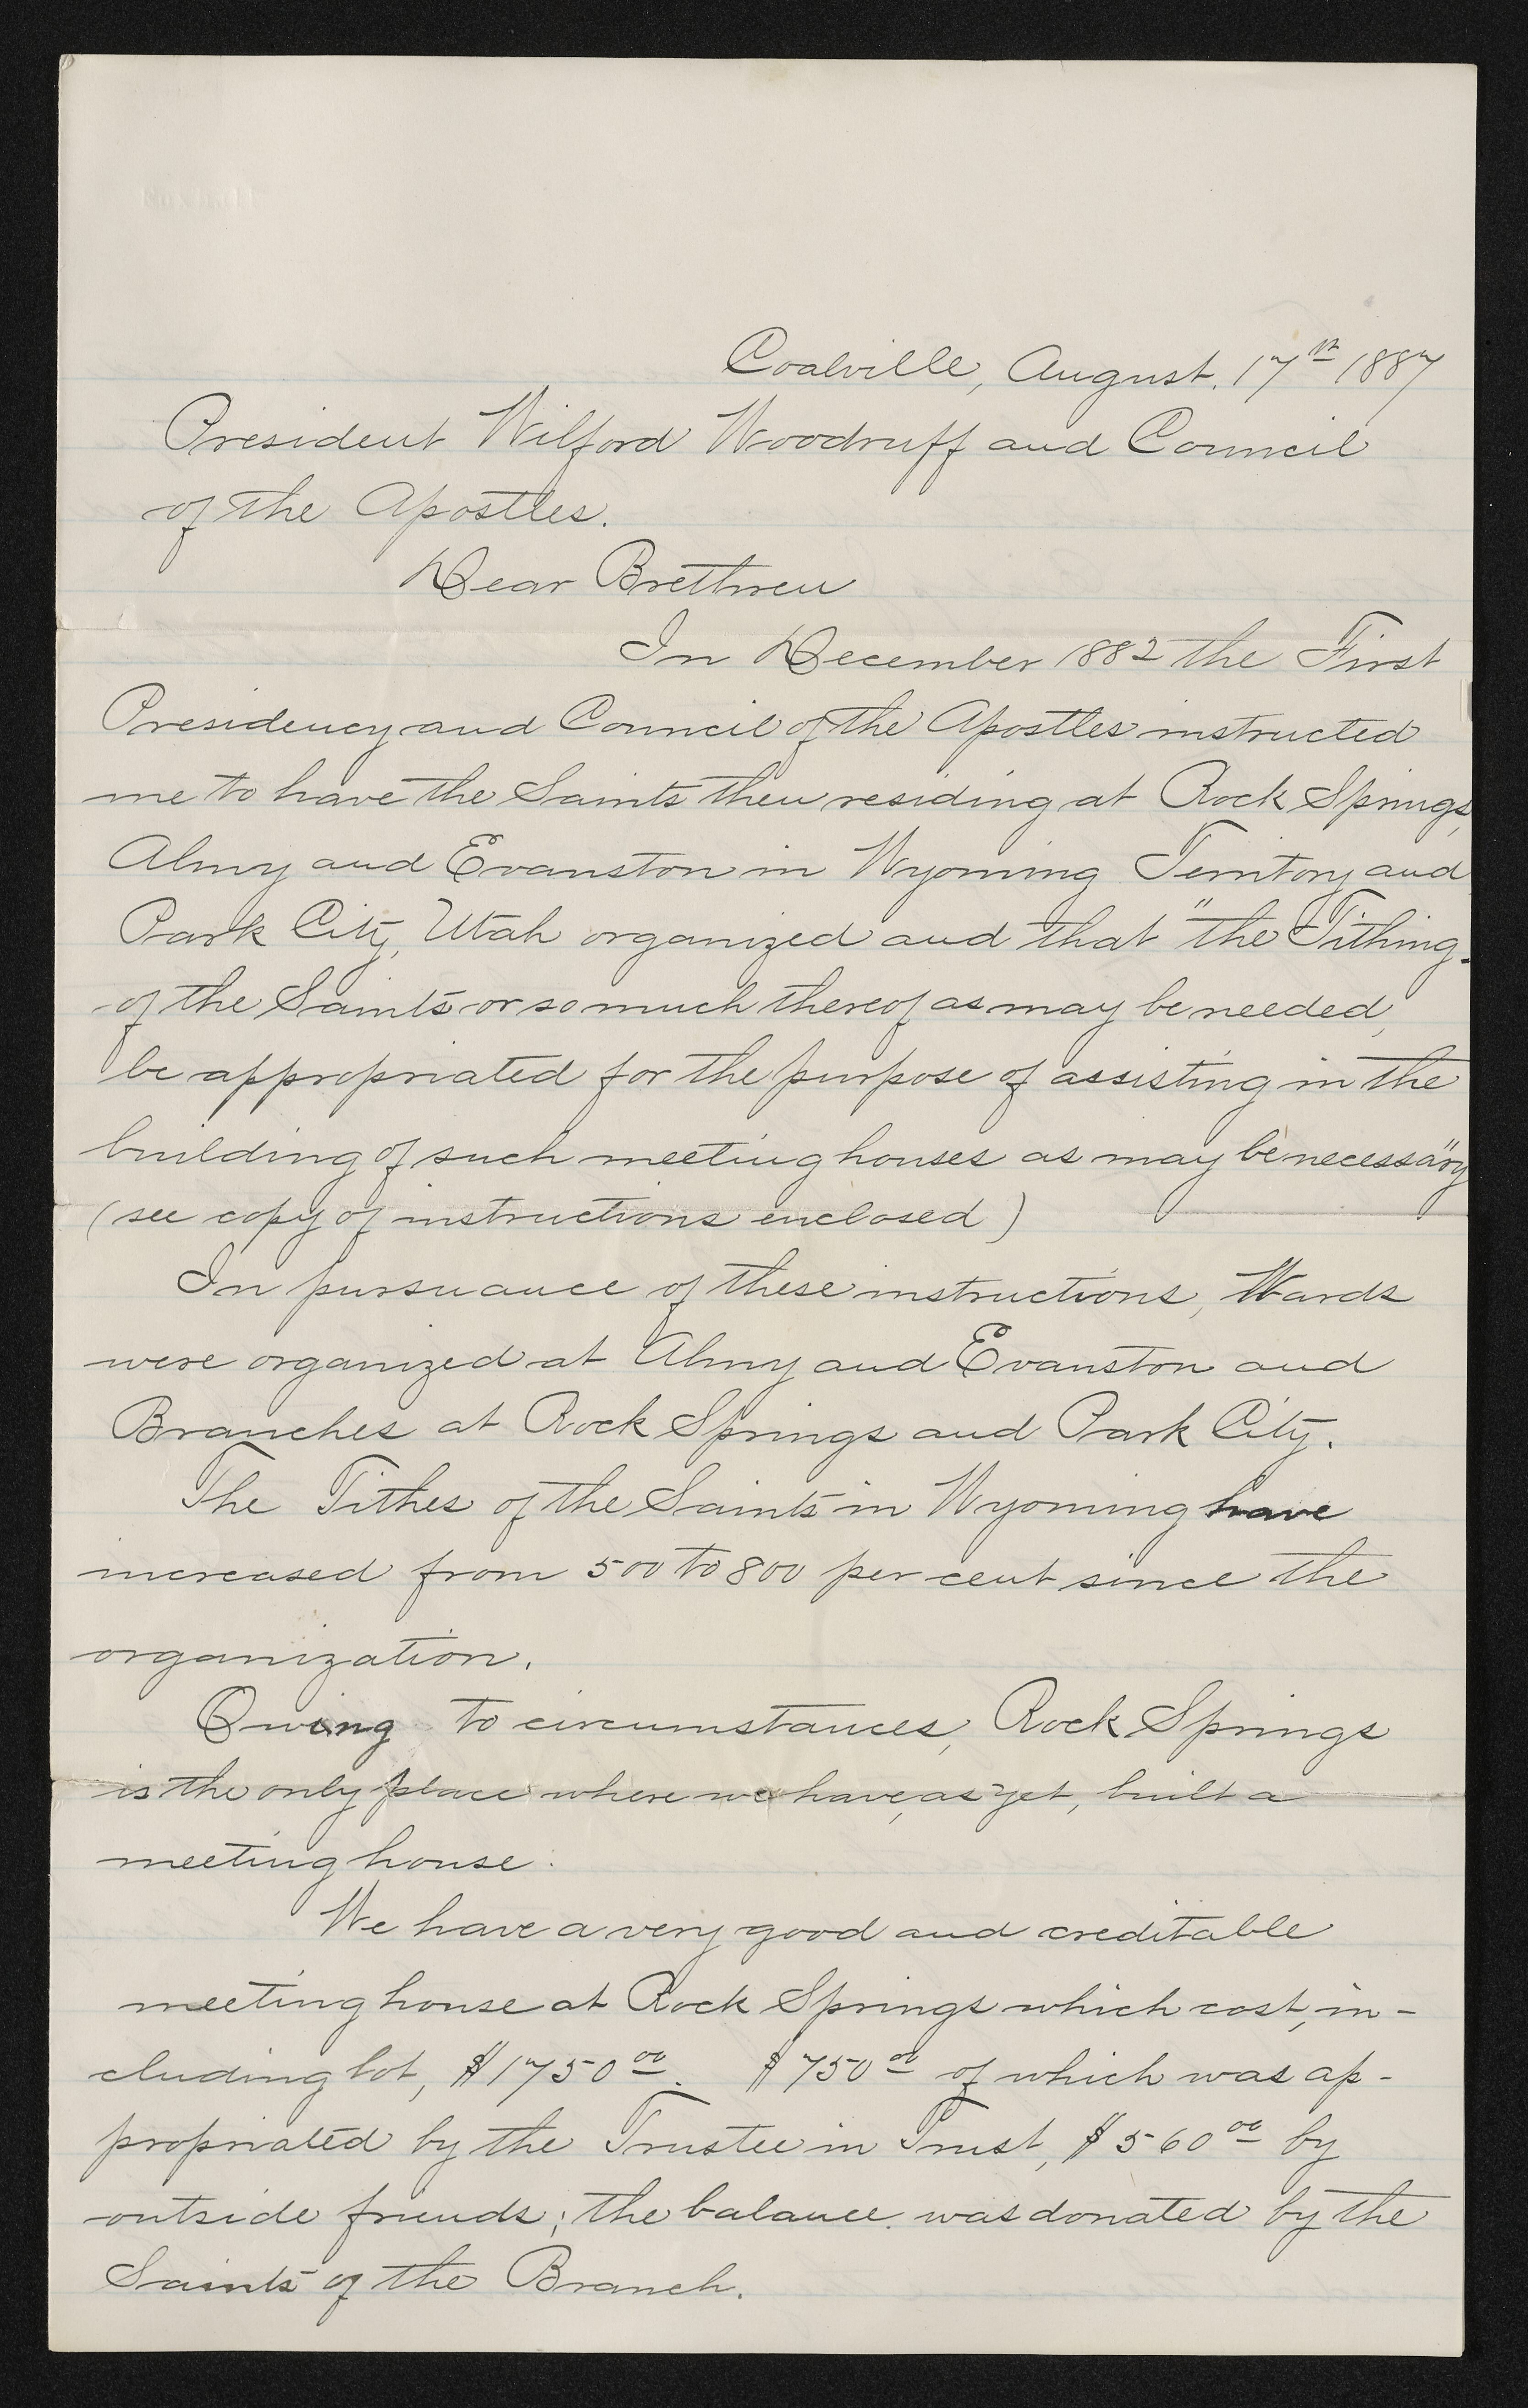 Coalville, August. 17th 1887
President Wilford Woodruff and Council
of the Apostles.
Dear Brethren
In December 1882 the First
Presidency and Council of the Apostles instructed
me to have the Saints then residing at Rock Springs,
Almy and Evanston in Wyoming Territory and
Park City, Utah organized and that "the Tithing
of the Saints or so much thereof as may be needed,
be appropriated for the purpose of assisting in the
building of such meeting houses as may be necessary"
(see copy of instructions enclosed)
In pursuance of these instructions, Wards
were organized at Almy and Evanston and
Branches at Rock Springs and Park City.
The Tithes of the Saints in Wyoming have
increased from 500 to 800 per cent since the
organization.
Owing to circumstances, Rock Springs
is the only place where we have, as yet, built a
meeting house.
We have a very good and creditable
meeting house at Rock Springs which cost, in-
cluding lot, $1750 00. $750 00 of which was ap-
propriated by the Trustee in Trust, $560 00 by
outside friends; the balance was donated by the
Saints of the Branch.